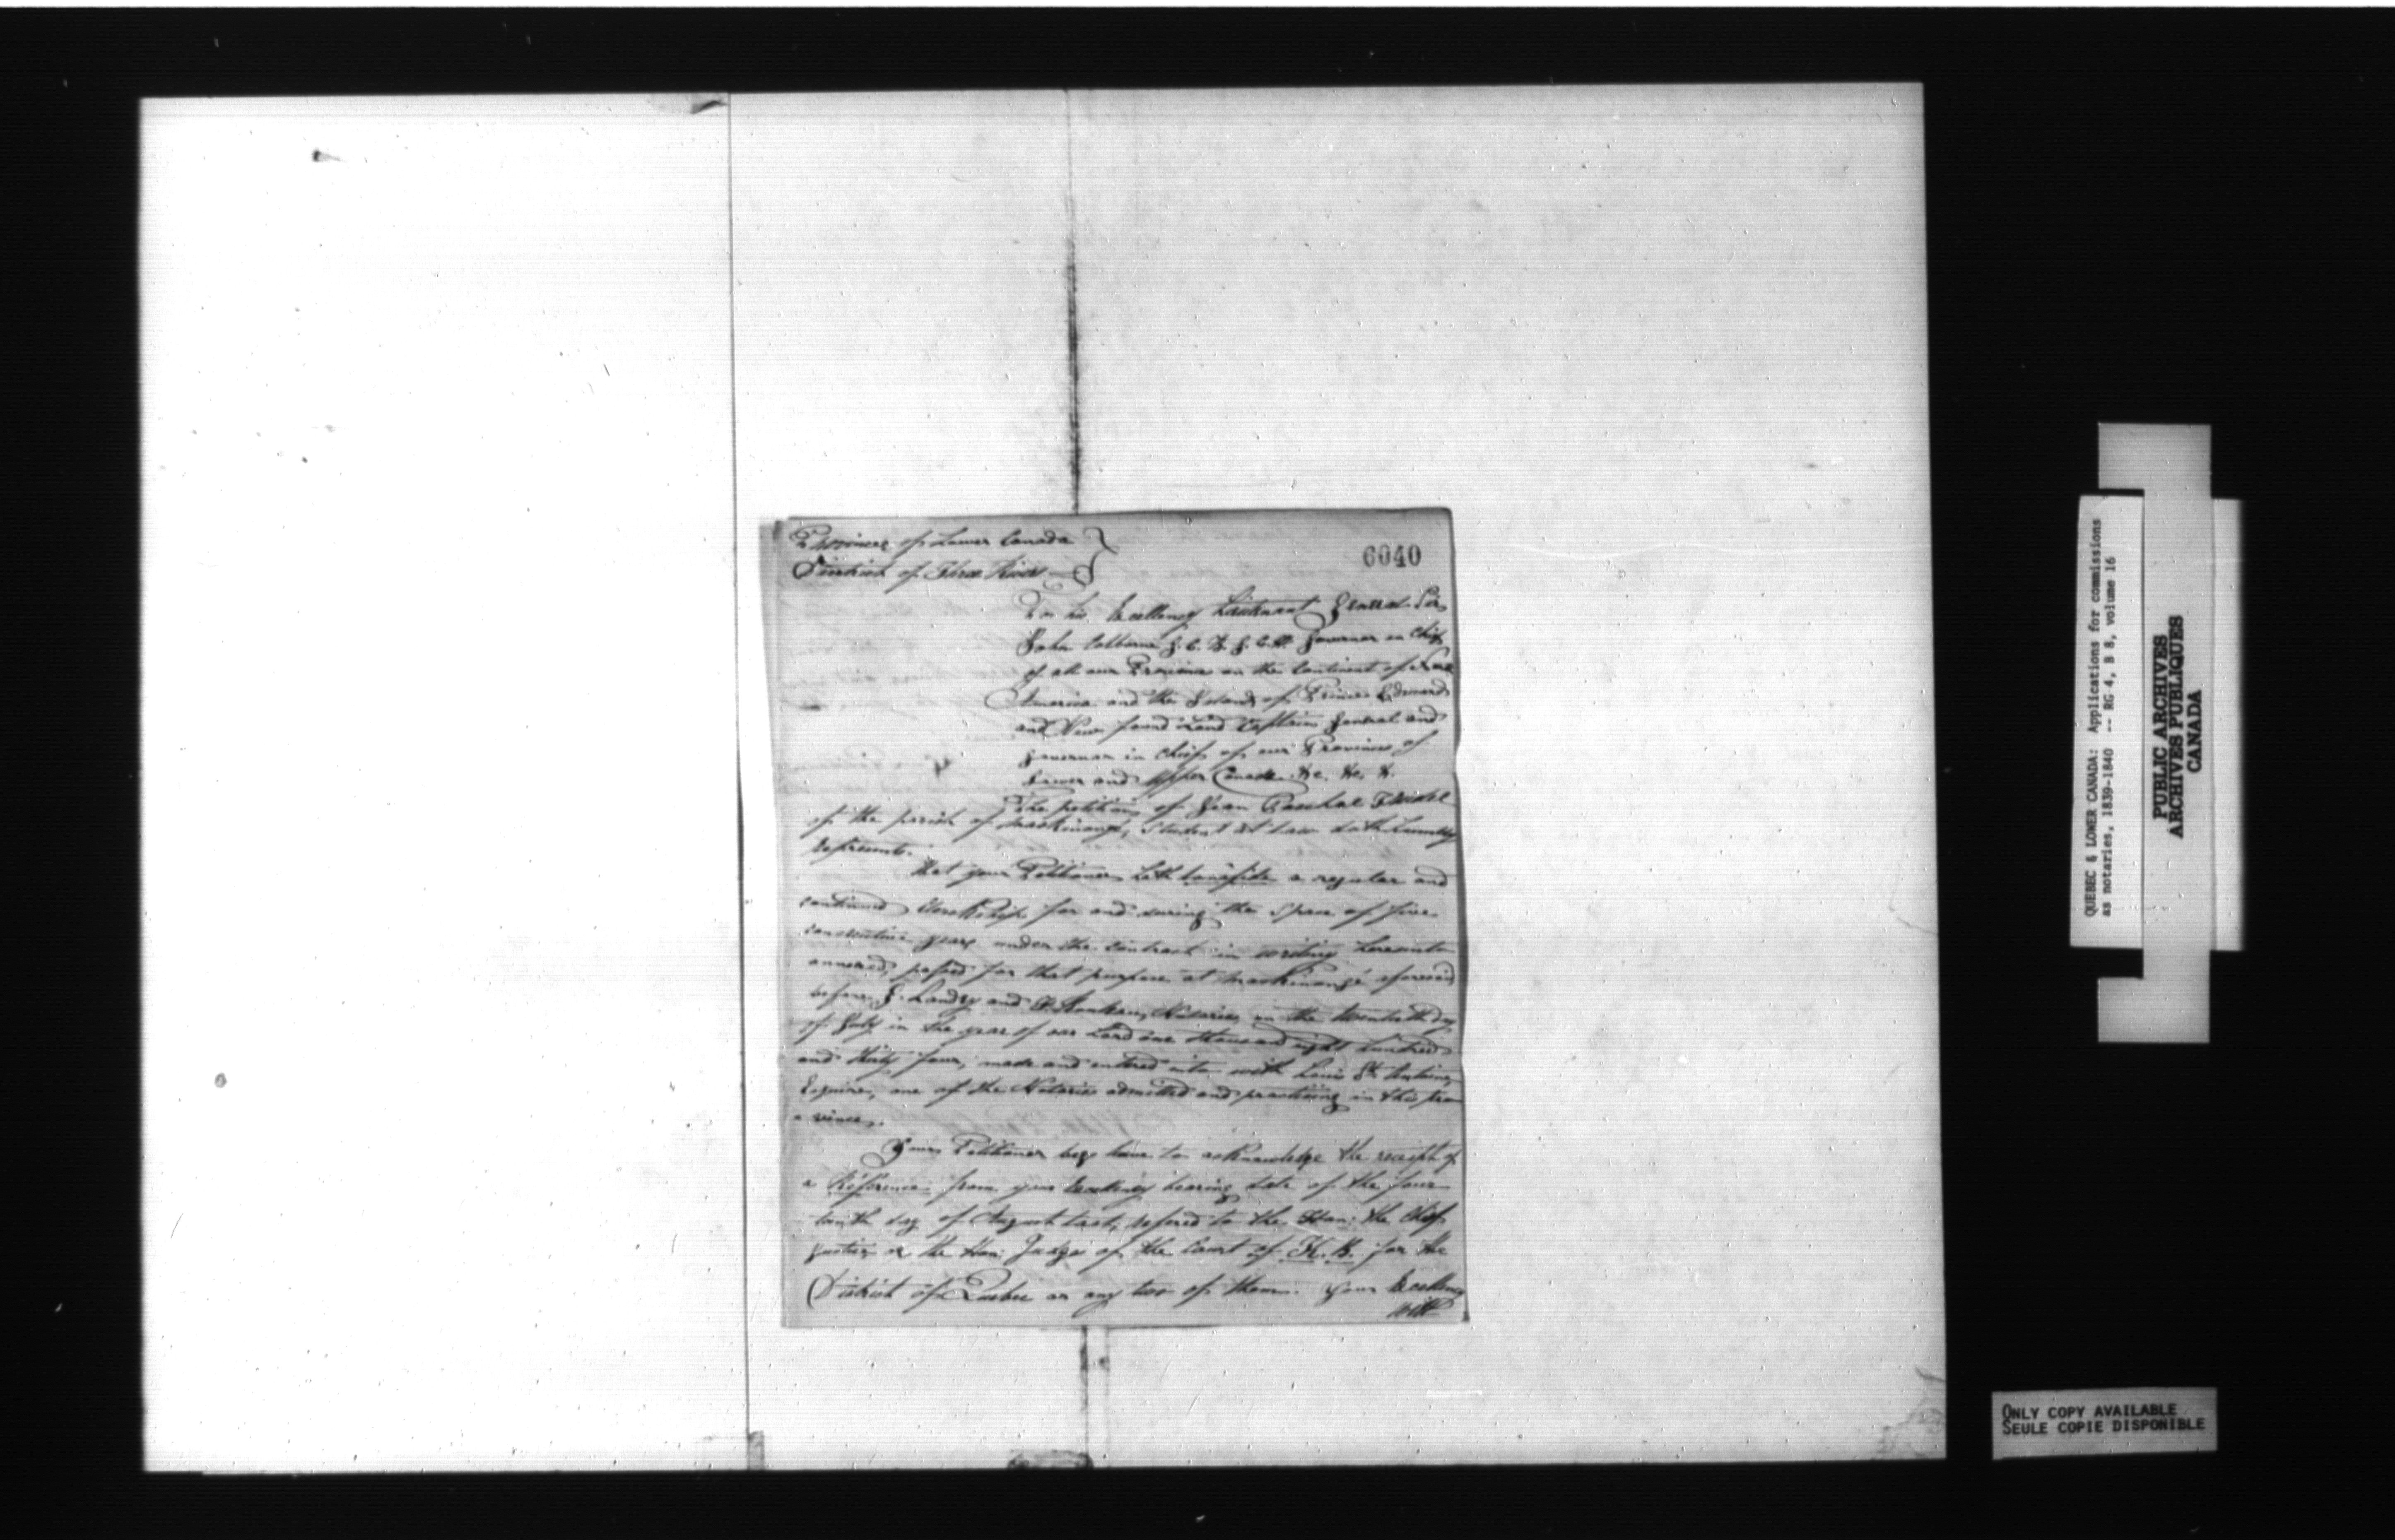 Province of Lower Canada
District of Three Rivers
6040
To his Excellency Lieutenant General Sir
John Colborne G. C. B. G. C. H. Governor in Chief
of all our Provinces on the Continent of North
America and the Islands of Prince Edward
and New found Land Captain General and
Governor in Chief of our Provinces of
Lower and Upper Canada &c. &c. &.
The petition of Jean Paschal
of the parish of Maskinongé, Student at Law doth humbly
represents.
That your Petitioner hath bonafide a regular and
continued Clerkship for and during the space of five
consecutive years under the contract in writing hereunto
annexed, passed for that purpose at Maskinongé aforesaid
before J. Landry and Notaries, on the twentieth day
of July in the year of our Lord one thousand eight hundred
and thirty four, made and entered into with Louis St Antoine,
Esquire, one of the Notaries admitted and practicing in this pro
vince.
Your Petitioner begs leave to acknowledge the receipt of
a Réference from your Excellency bearing date of the four
teenth day of August last, refered to the Hon: the Chief
Justice or the Hon: Judges of the Court of K. B. for the
District of Quebec or any two of them. Your Excellency
will
QUEBEC & LOWER CANADA: Applications for commissions
as notaries, 1839-1840 -- RG 4, B 8, volume 16
PUBLIC ARCHIVES
ARCHIVES PUBLIQUES
CANADA
ONLY COPY AVAILABLE
SEULE COPIE DISPONIBLE